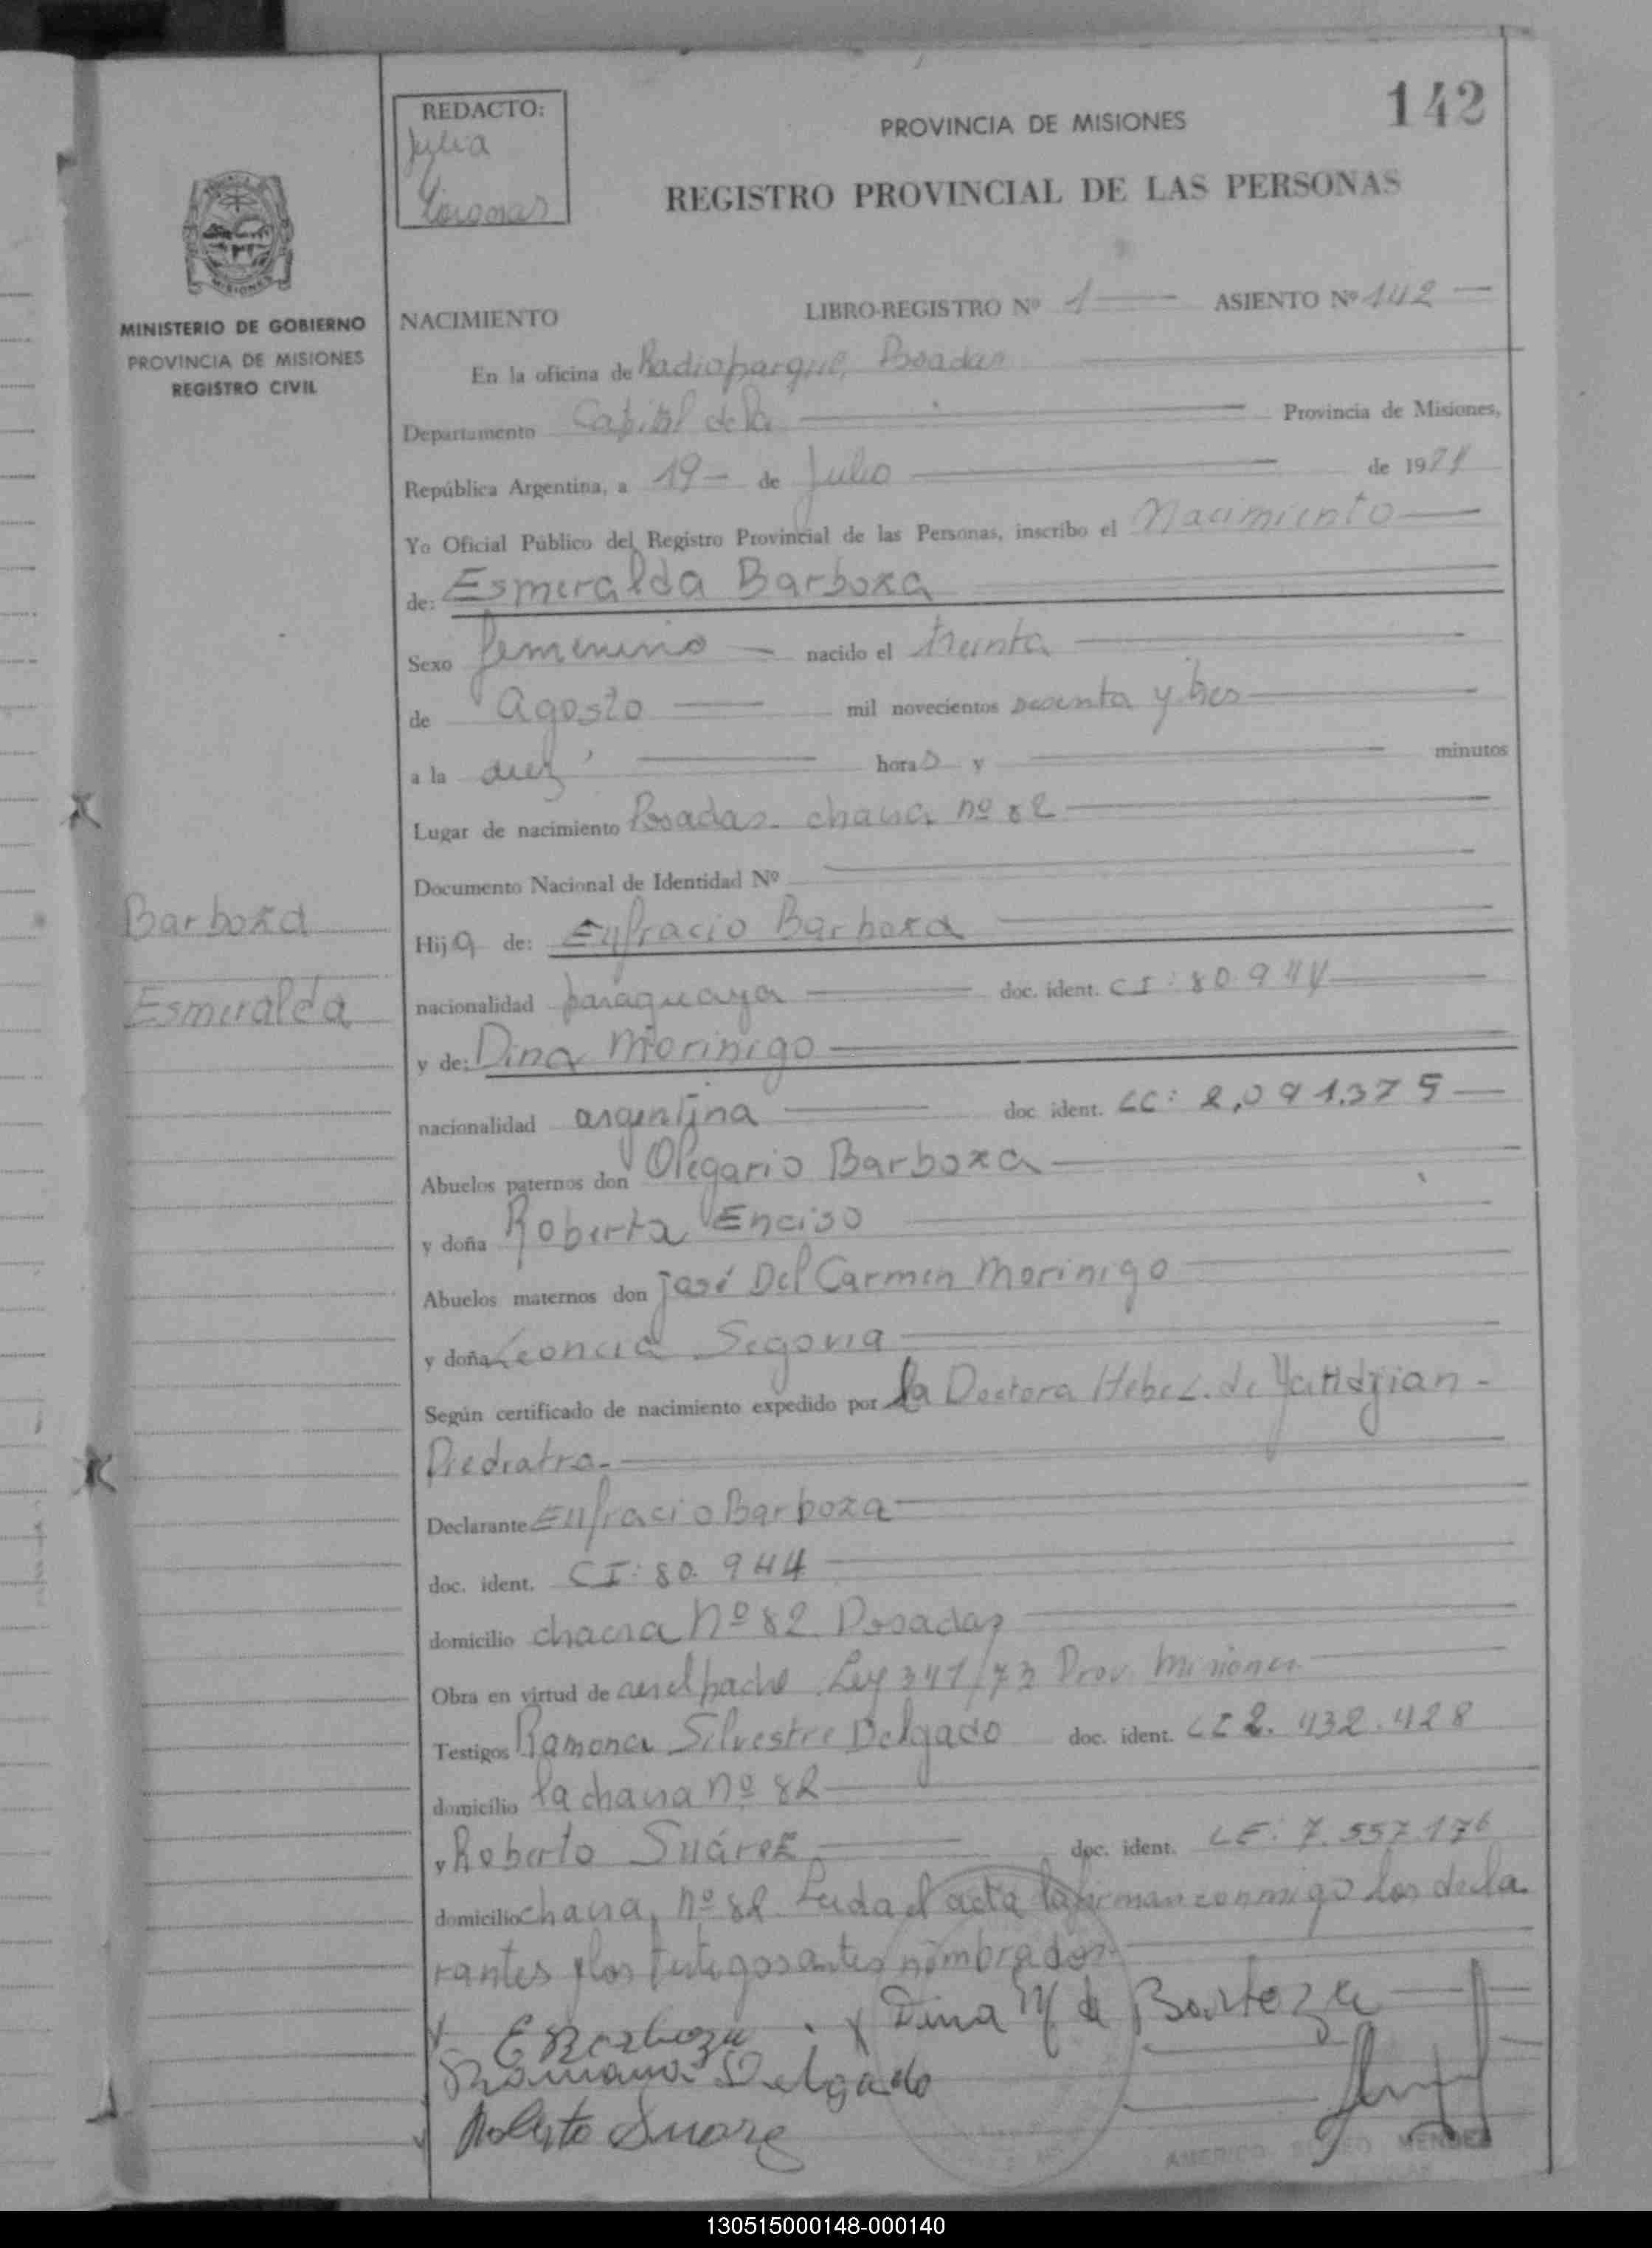 142
REDACTO:
PROVINCIA DE MISIONES
REGISTRO PROVINCIAL DE LAS PERSONAS
MISIONES
MINISTERIO DE GOBIERNO
PROVINCIA DE MISIONES
REGISTRO CIVIL
NACIMIENTO LIBRO-REGISTRO Nº 1 ASIENTO Nº 142
En la oficina de Radioparque, Posadas
Departamento Capital de la Provincia de Misiones,
República Argentina, a 19 de Julio de 1974
Yo Oficial Público del Registro Provincial de las Personas, inscribo el Nacimiento
de: Esmeralda Barboza
Sexo femenino nacido el treinta
de Agosto mil novecientos sesenta y tres
a la diez horas y minutos
Lugar de nacimiento Posadas chacra nº 82
Documento Nacional de Identidad Nº
Barboza
Hija de: Eufracio Barboza
Esmeralda
nacionalidad paraguaya doc. ident. CI: 80.944
y de: Dina Morinigo
nacionalidad argentina doc. ident. LC: 2,091.375
Abuelos paternos don Olegario Barboza
y doña Roberta Enciso
Abuelos maternos don José Del Carmen Morinigo
y doña Leoncia Segovia
Según certificado de nacimiento expedido por la Doctora Hebe L. de
Pediatra
Declarante Eufracio Barboza
doc. ident. CI: 80.944
domicilio chacra Nº 82 Posadas
Obra en virtud de ser el padre Ley 341/73 Prov. Misiones
Testigos Ramona Silvestre Delgado doc. ident. 2.432.428
domicilio la chacra nº 82
y Roberto Suárez doc. ident. LE: 7.557.176
domicilio chacra nº 82 Leida el acta la firman conmigo los decla
rantes y los testigos antes nombrados
E Barboza x Dina M de Barboza
Ramona S Delgado
Roberto Suarez
AMERICO MENDEZ
130515000148-000140